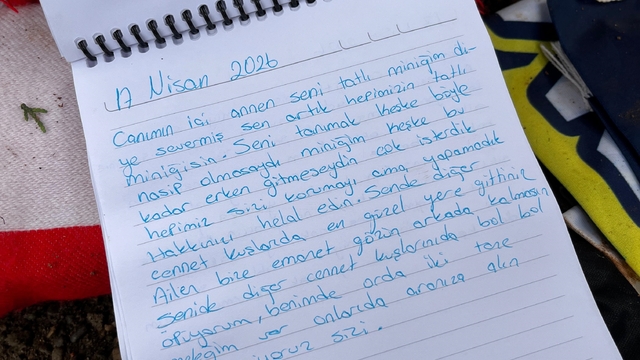 17 Nisan 2026
Canımın içi annen seni tatlı miniğim di-
ye severmiş sen artık hepimizin tatlı
miniğisin. Seni tanımak keşke böyle
nasip olmasaydı miniğim keşke bu
kadar erken gitmeseydin çok isterdik
hepimiz sizi korumayı ama yapamadık
Hakkınızı helal edin. Sende diğer
cennet kuşlarıda en güzel yere gittiniz
Ailen bize emanet gözün arkada kalmasın
Senide diğer cennet kuşlarınıda bol bol
öpüyorum, benimde orda iki tane
meleğim var onlarıda aranıza alın
sizi.